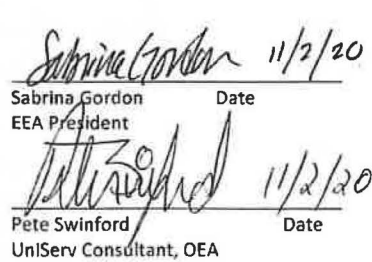 Sabrina Gordon 11/2/20
Sabrina Gordon Date
EEA President
Pete Swinford 11/2/20
Pete Swinford Date
UniServ Consultant, OEA